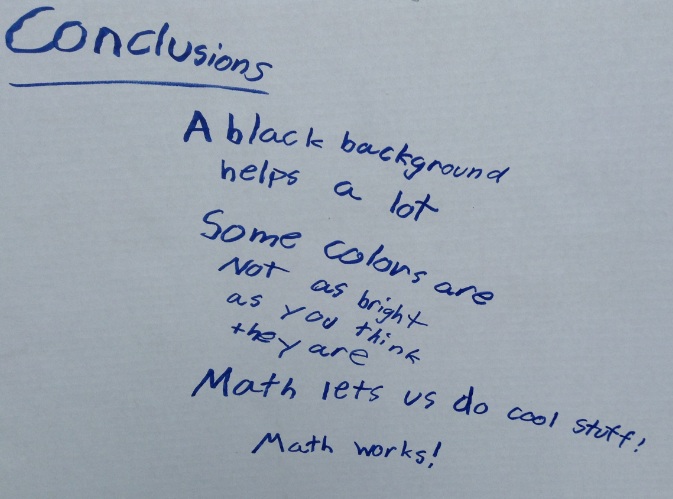 Conclusions
A black background
helps a lot
Some colors are
Not as bright
as you think
they are
Math lets us do cool stuff!
Math works!